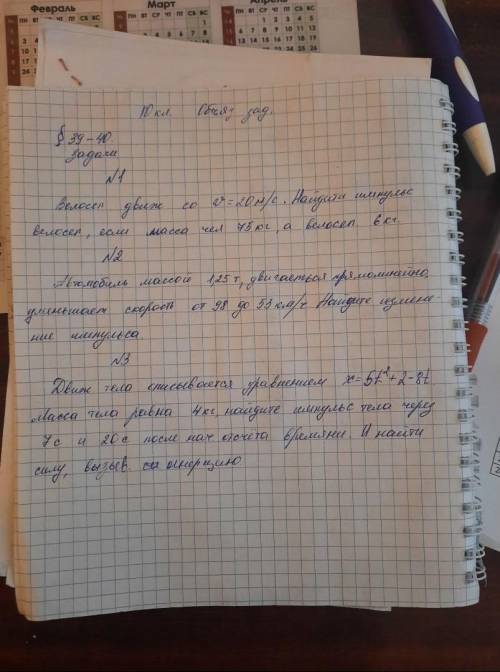 Февраль
Март
Апрель
пн вт ср чт пт сб вс
10 кл. Общая зад.
§ 39-40.
Задачи
N1
Велосеп движ со v = 20 м/с. Найдити импульс
велосеп, если масса чел 75 кг, а велосеп 6 кг.
N2
Автомобиль массой 1,25 т, двигаеться прямолинейно,
уменьшает скорость от 98 до 53 км/ч. Найдите измене-
ние импульса.
N3
Движ тела описывается уравнением x = 5t² + 2 - 8t
Масса тела равна 4 кг, найдите импульс тела через
7 с и 20 с после нач отсчета времяни. И найти
силу, вызыв